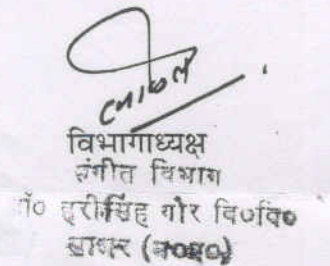 विभागाध्यक्ष
संगीत विभाग
डॉ० हरीसिंह गोर वि०वि०
सागर (म०प्र०)